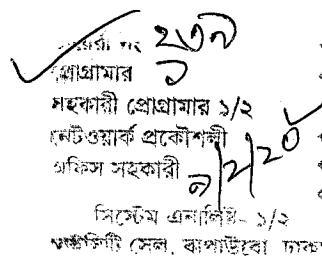 ডায়েরী নং ২৩৭
প্রোগ্রামার ১
সহকারী প্রোগ্রামার ১/২
নেটওয়ার্ক প্রকৌশলী
অফিস সহকারী ৯/২/২০
সিস্টেম এনালিষ্ট- ১/২
আইসিটি সেল, বাপাউবো ঢাকা